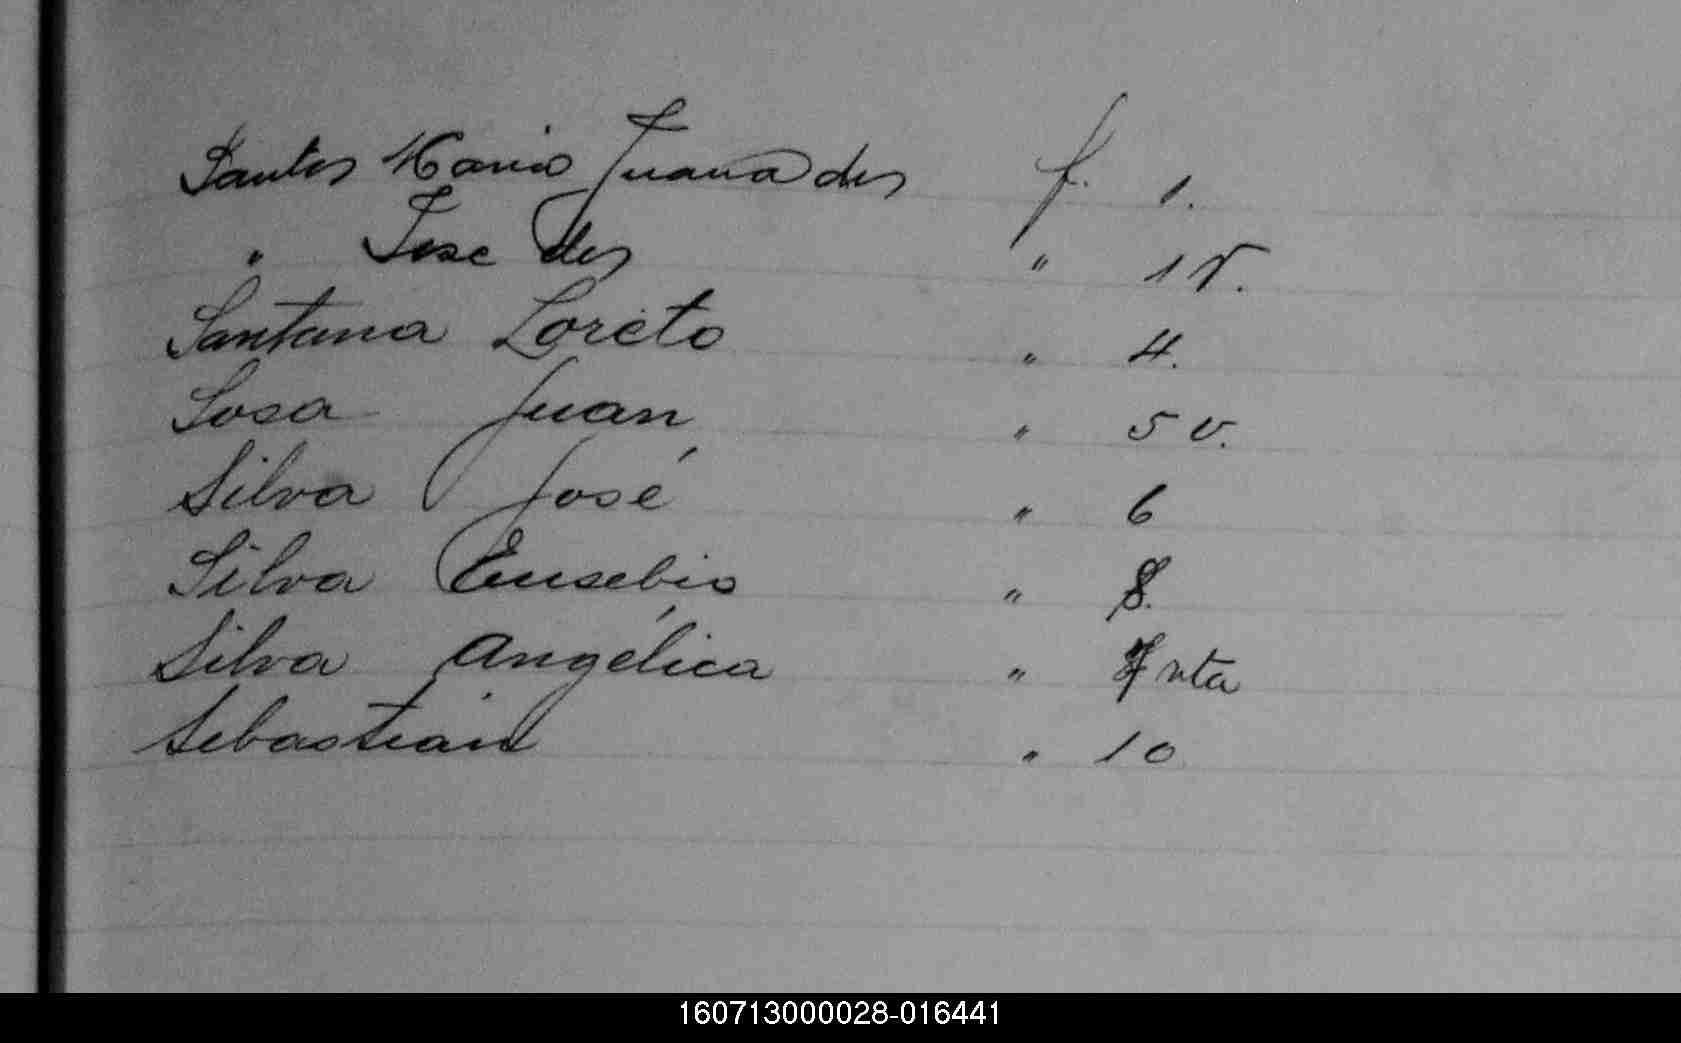 Santos Maria Juana dos f. 1.
" Jose dos " 1 v.
Santana Loreto " 4.
Sosa Juan " 5 v.
Silva José " 6
Silva Eusebio " 8.
Silva Angélica " 7 vta
Sebastian " 10
160713000028-016441